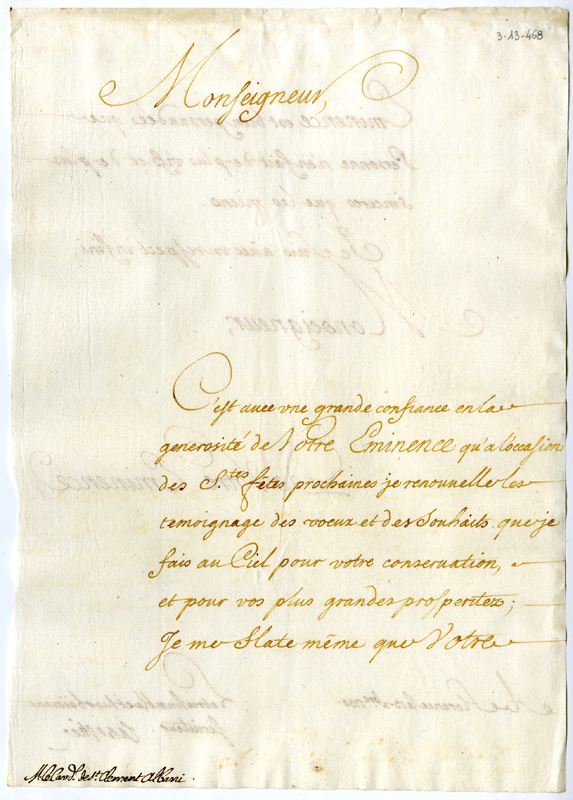 3-13-468
Monseigneur,
C'est avec vne grande confiance en la
generosité de Votre Eminence qu'a l'occasion
des S.tes fêtes prochaines je renouvelle les
temoignage des voeux et des Souhaits que je
fais au Ciel pour votre conservation,
et pour vos plus grandes prosperitez;
Je me flate même que Votre
M. le Card.l de St. Clement Albani.